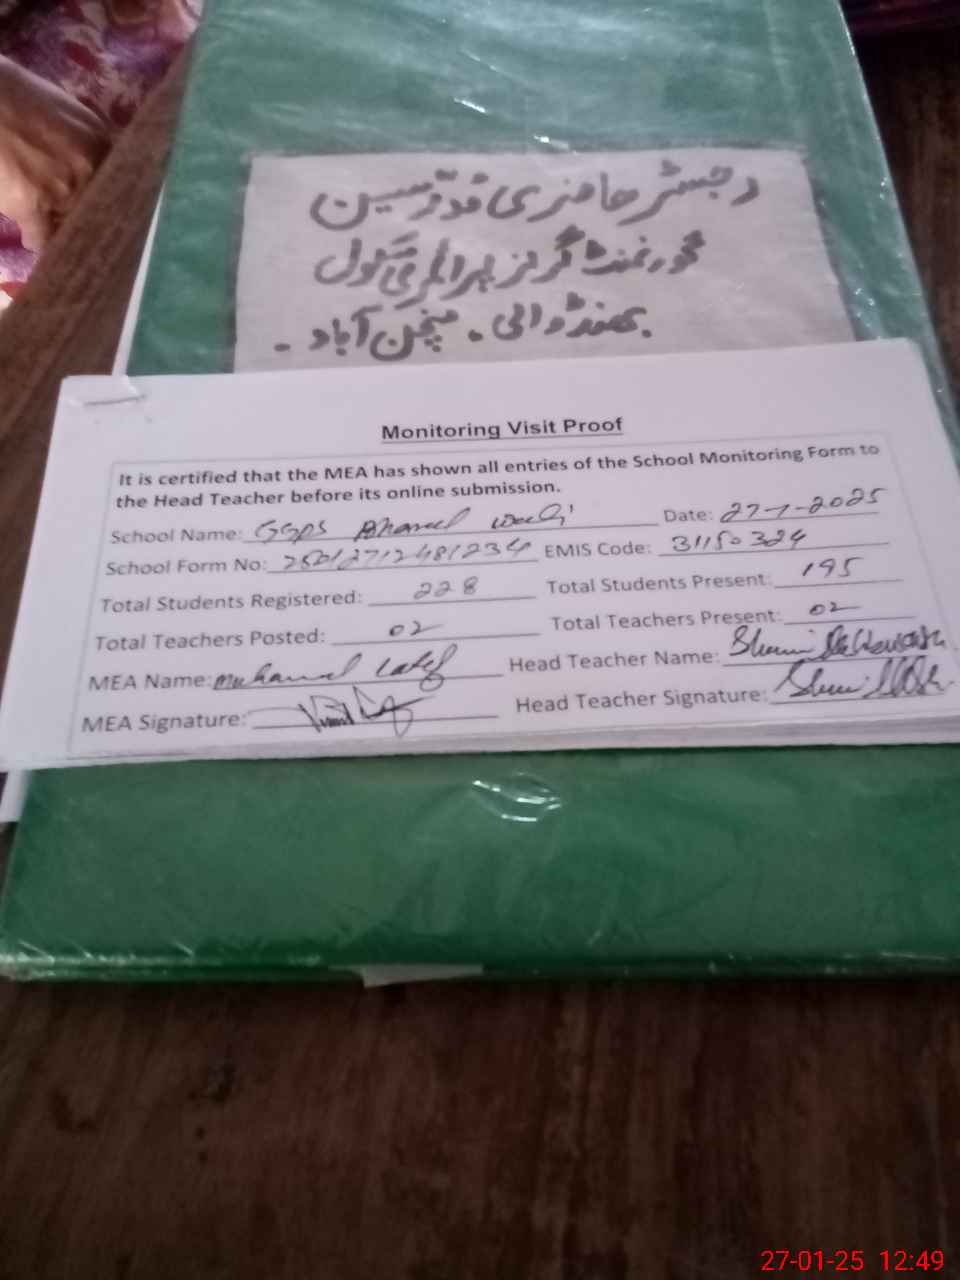 رجسٹر حاضری مدرسین
گورنمنٹ گرلز پرائمری سکول
بھنڈ والی ۔ منچن آباد ۔
Monitoring Visit Proof
It is certified that the MEA has shown all entries of the School Monitoring Form to
the Head Teacher before its online submission.
School Name: GGPS Date: 27-1-2025
School Form No: EMIS Code: 31150324
Total Students Registered: 228 Total Students Present: 195
Total Teachers Posted: 02 Total Teachers Present: 02
MEA Name: Head Teacher Name:
MEA Signature: Head Teacher Signature:
27-01-25 12:49